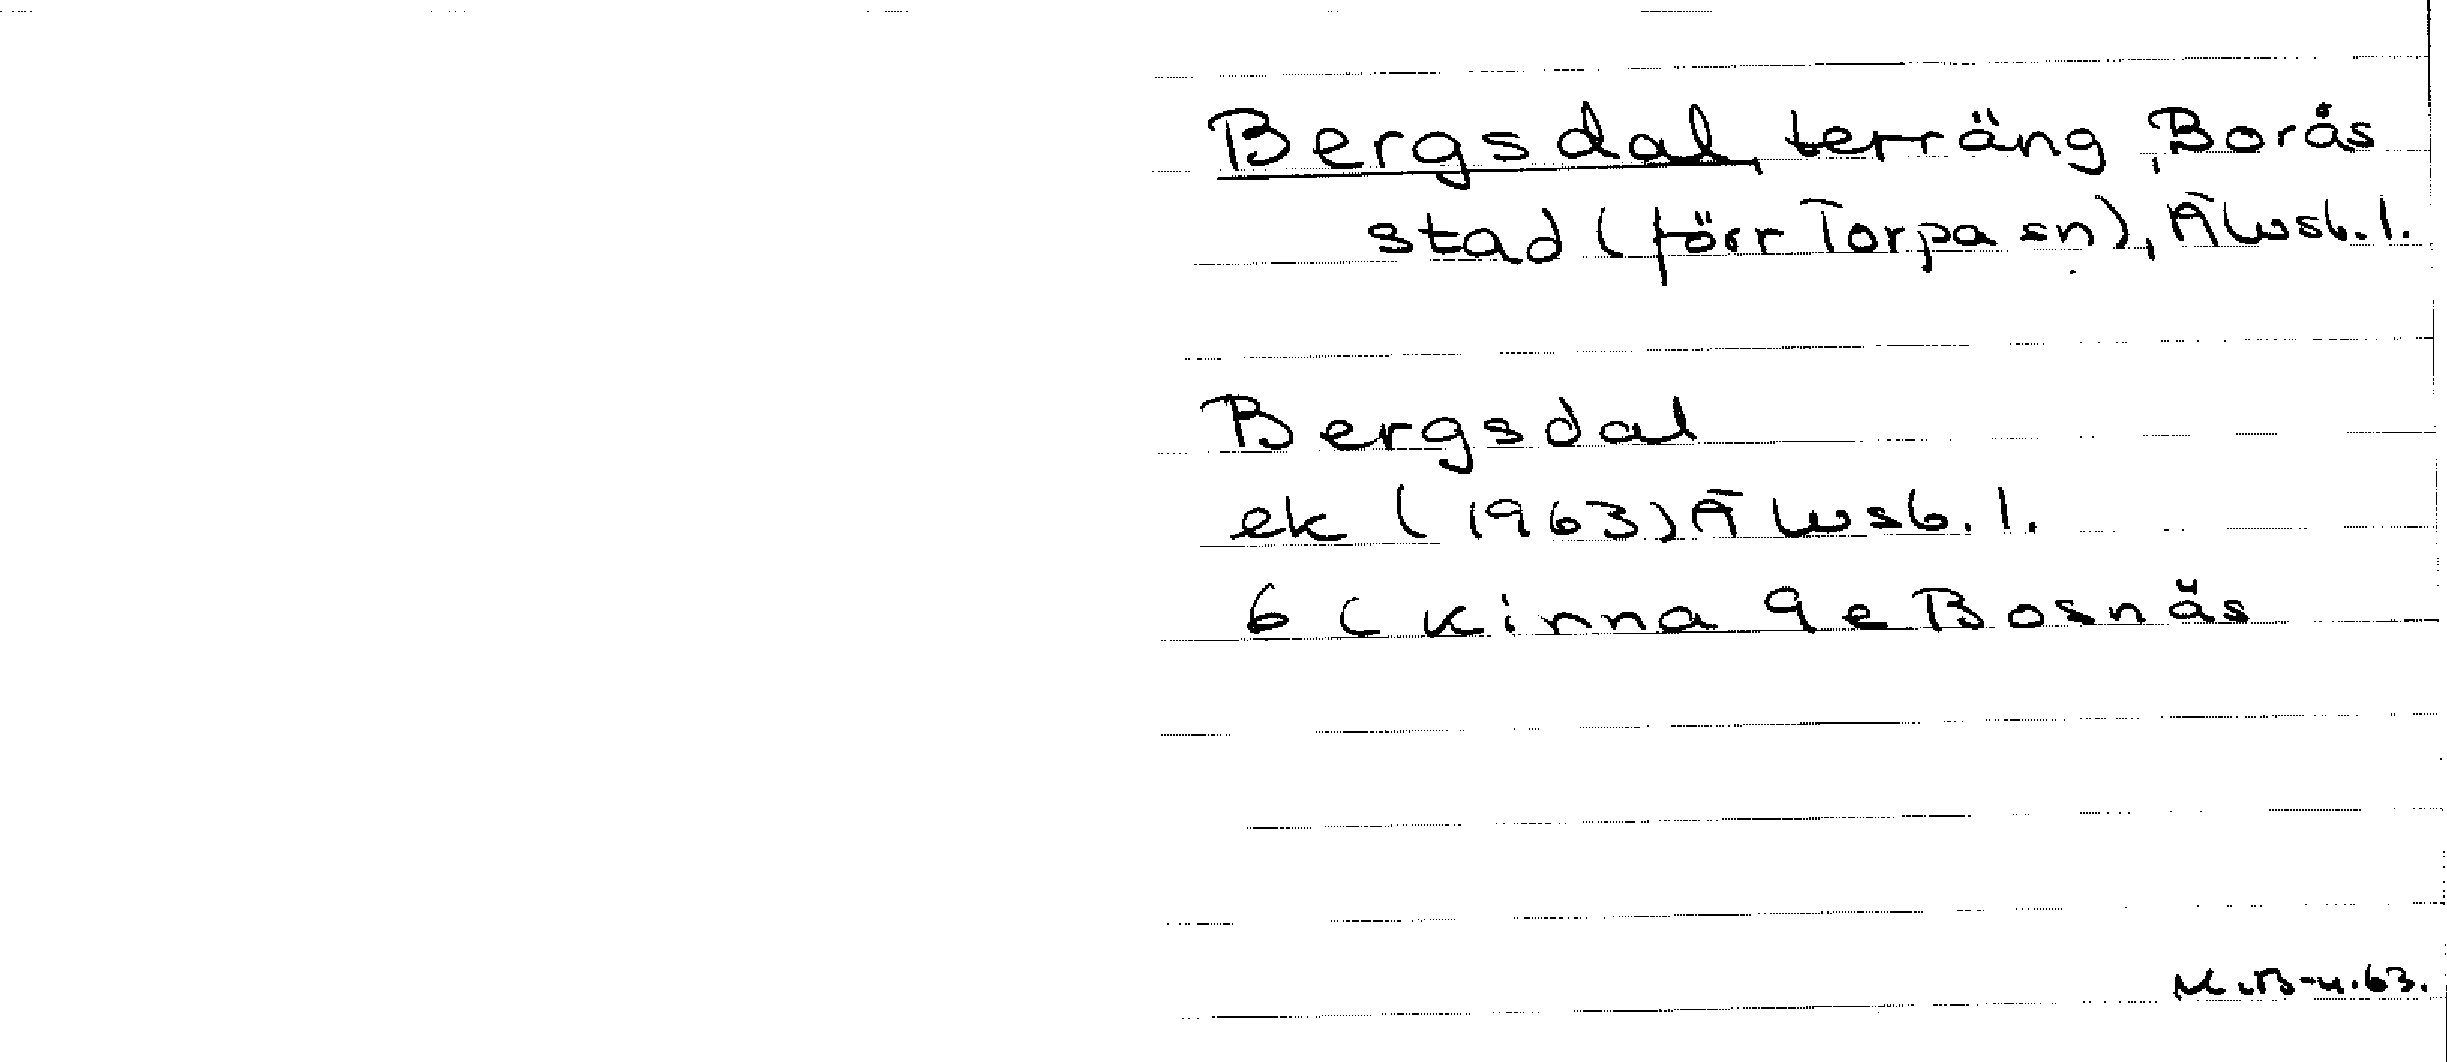 Bergsdal, terräng, Borås
stad (förr Torpa sn), Älvsb. l.
Bergsdal
ek (1963) Älvsb. l.
6 C Kinna 9e Bosnäs
M.B-u.63.